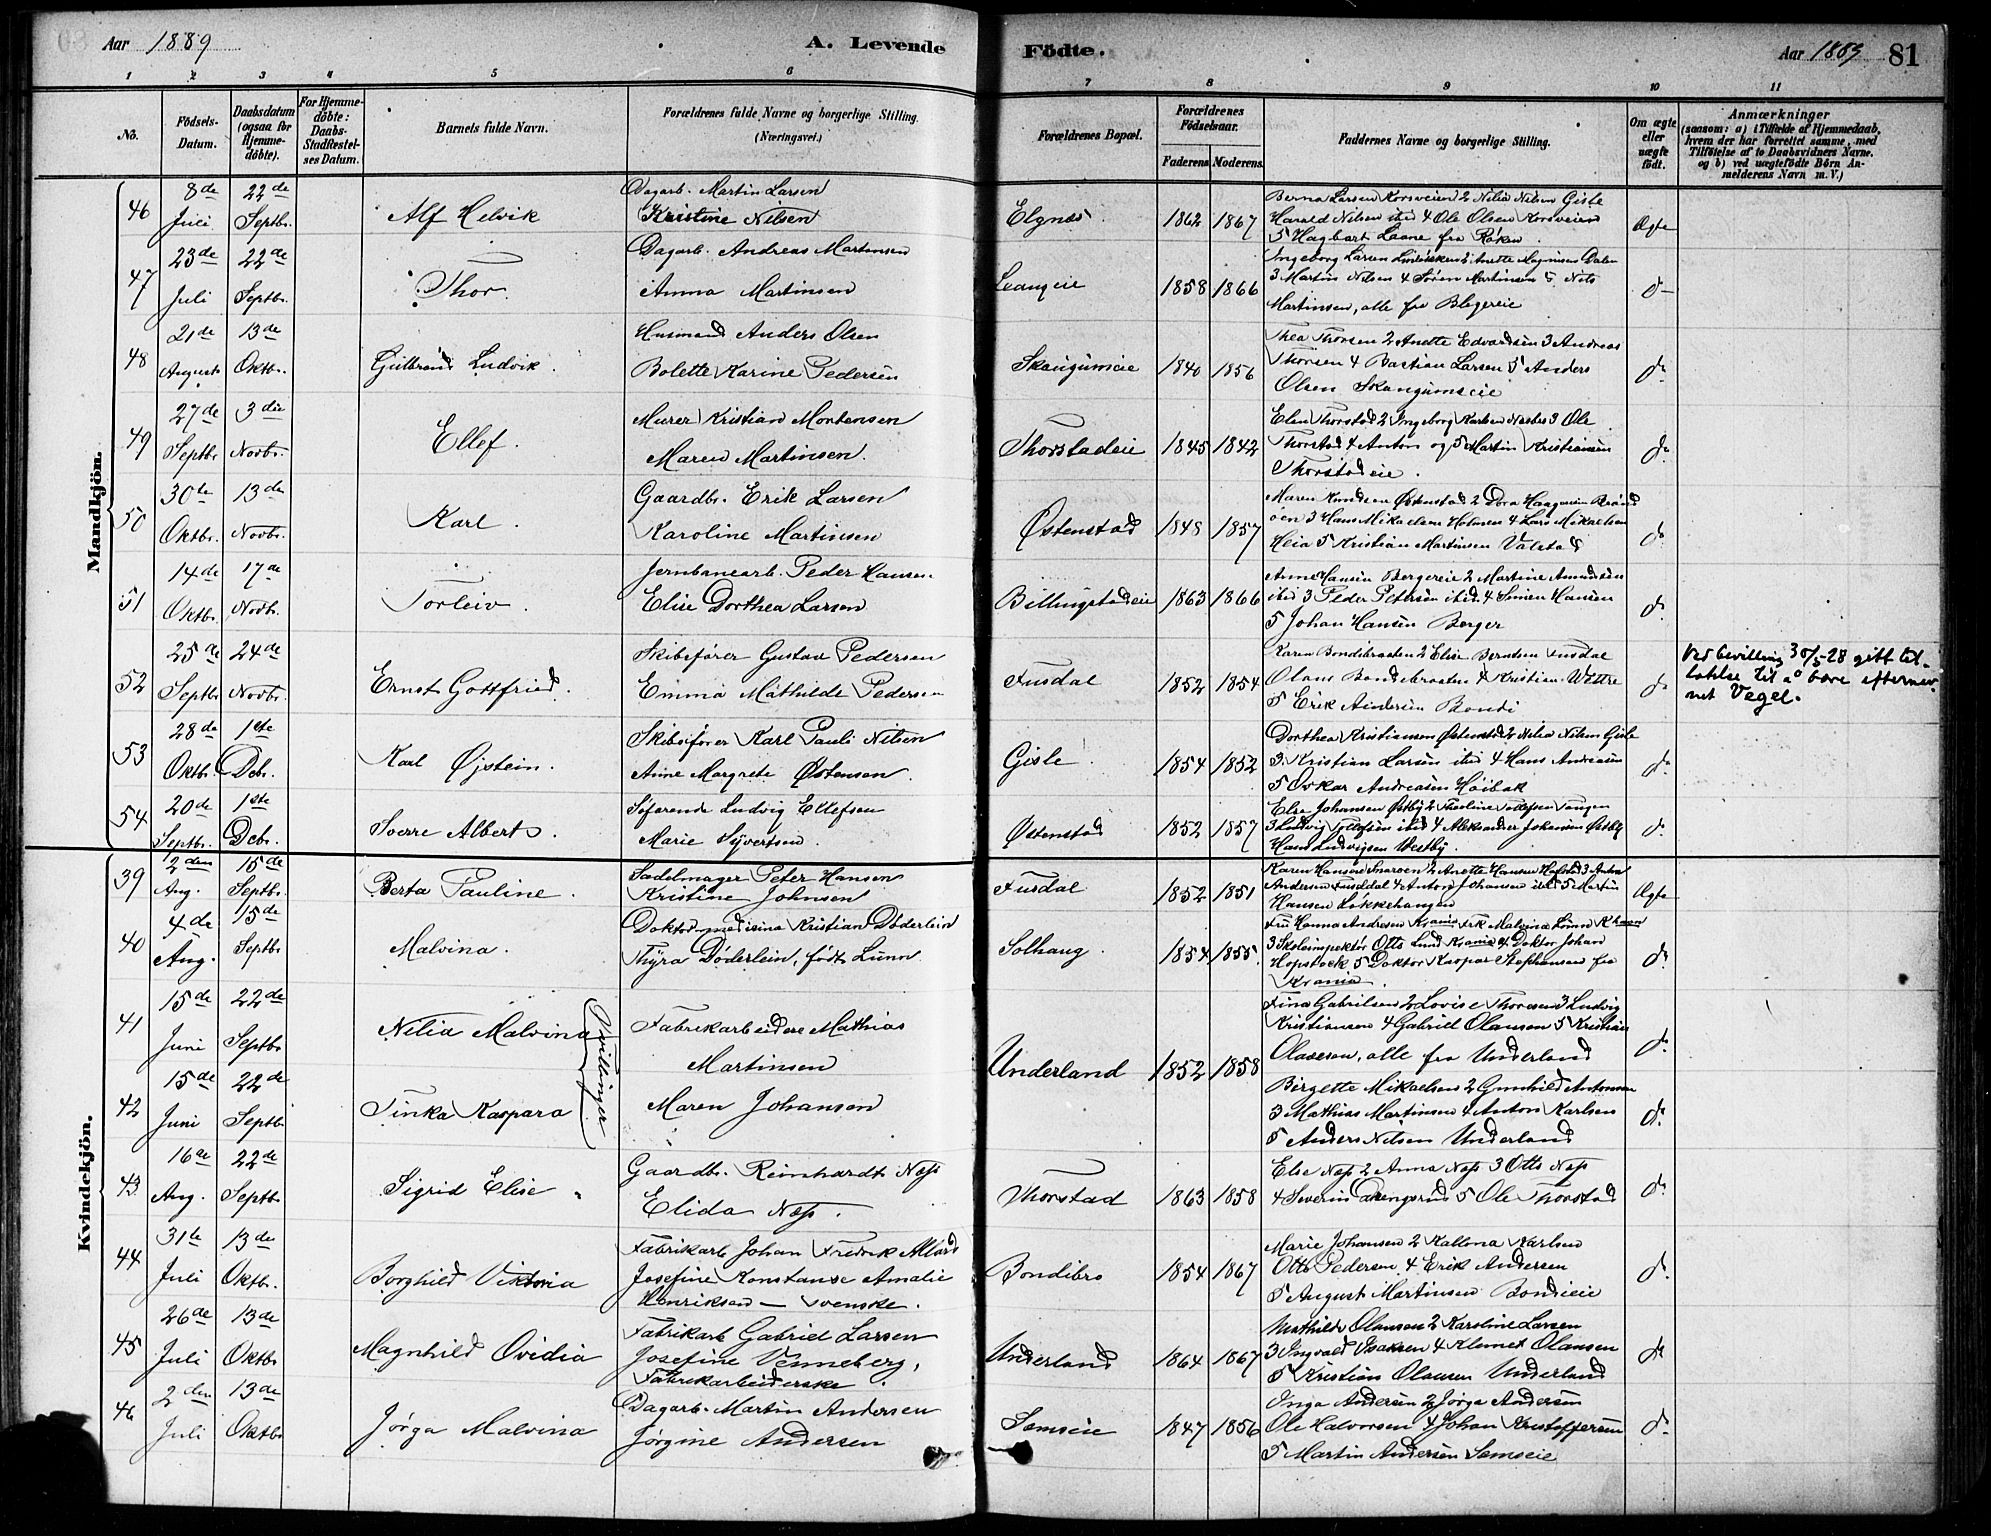 Aar 1889
A. Levende
Födte.
Aar 1889
81
1 2 3 4 5 6 7 8 9 10 11
No.
Födsels-Datum.
Daabsdatum (ogsaa for Hjemme-döbte).
For Hjemme-döbte: Daabs-Stadfæstel-ses Datum.
Barnets fulde Navn.
Forældrenes fulde Navne og borgerlige Stilling. (Næringsvei.)
Forældrenes Bopæl.
Forældrenes Födselsaar.
Faderens Moderens
Faddernes Navne og borgerlige Stilling.
Om ægte eller uægte födt.
Anmærkninger
(saasom: a) i Tilfælde af Hjemmedaab,
hvem der har forrettet samme, med
Tilföielse af to Daabsvidners Navne,
og b) ved uægtefödte Börn An-
melderens Navn m. V.)
Mandkjön.
46 8de Juli 22de Septbr. Alf Helvik
Dagarb. Martin Larsen
Kristine Nilsen
Elgnes 1862 1867
Berna Larsen Korsveien 2 Nilia Nilsen Gisle
Harald Nilsen itid 4 Ole Olsen Korsveien
5 Hagbart Laane fra Röken
Ægte
47 23de Juli 22de Septbr. Thor.
Dagarb. Andreas Martensen
Anna Martinsen
1858 1866
Ingeborg Larsen 2 Anette Magnusen Dalen
3 Martin Nilsen 4 Sören Martinsen 5 Nils
Martinsen, alle fra
do
48 21de August 13de Oktbr. Gulbrand Ludvik.
Husmand Anders Olsen
Bolette Karine Pedersen
Skaugumeie 1840 1856
Thea Thorsen 2 Anette Edvardsen 3 Andreas
Thorsen 4 Bastian Larsen 5 Anders
Olsen Skaugumseie
do
49 27de Septbr. 3die Novbr. Ellef.
Murer Kristian Mortensen
Maren Martinsen.
Thorstadeie 1845 1842
Elen Thorstad 2 Ingeborg Karlsen Nesbø 3 Ole
Thorstad 4 Anton og 5 Martin Kristiansen
Thorstadeie.
do
50 30te Oktbr. 13de Novbr. Karl.
Gaardbr. Erik Larsen
Karoline Martinsen
Østenstad 1848 1857
Maren Knudsen Østenstad 2 Dora Haagensen Brænd
öen 3 Hans Mikaelsen Holmen 4 Lars Mikaelsen
Heia 5 Kristian Martinsen Valstad
do
51 14de Oktbr. 17de Novbr. Torleiv.
Jernbanearb. Peder Hansen
Elise Dorthea Larsen
Billingstadeie 1863 1866
Anne Hansen Bergereie 2 Martine Amundsen
itid 3 Peder Petersen itid. 4 Simen Hansen
5 Johan Hansen Berger
do
52 25de Septbr. 24de Novbr. Ernst Gottfried.
Skibsförer Gustav Pedersen
Emma Mathilde Pedersen
Fusdal 1852 1854
Karen Bondibraaten 2 Elise Berntsen Fusdal
Olaus Bondibraaten 4 Kristian Wettre
5 Erik Andersen Bondi
do
Ved bevilling 30/5-28 gitt til-
latelse til å bære efternav-
net Vegel.
53 28de Oktbr. 1ste Dcbr. Karl Øistein.
Skibsförer Karl Pauli Nilsen
Anne Margrete Østensen
Gisle 1854 1852
Dorthea Kristiansen Østenstad 2 Nilia Nilsen Gisle
3 Kristian Larsen itid 4 Hans Andreasen
5 Oskar Andreasen Høibak
do
54 20de Septbr. 1ste Dcbr. Sverre Albert.
Söfarende Ludvig Ellefsen
Marie Syvertsen.
Østenstad 1852 1857
Else Johansen Østby 2 Thorline Tollefsen Tangen
3 Ludvig Tollefsen itid 4 Aleksander Johansen Østby
Hans Ludvigsen Westby.
do
Kvindekjön.
39 2den Aug. 15de Septbr. Berta Pauline.
Sadelmager Peter Hansen
Kristine Johnsen
Fusdal 1852 1851
Karen Hansen Snaroen 2 Anette Hansen Hofstad 3 Anton
Andersen Fusdal 4 Anton Johansen itid 5 Martin
Hansen Løkkehaugen
Ægte
40 4de Aug. 15de Septbr. Malvina.
Doktor medisina Kristian Döderlein
Thyra Döderlein, födt Lunn
Solhaug. 1854 1855
Fru Hanna Andresen Krania Frk Malvina Lunn Khavn
3 Skoleinspektör Otto Lund Krania 4 Doktor Johan
Hopstock 5 Doktor Kaspar Stephansen fra
Krania.
do
41 15de Juni 22de Septbr Nilia Malvina
42 15de Juni 22de Septbr Tinka Kaspara
Tvillinger
Fabrikarbeidere Mathias
Martinsen
Maren Johansen
Underland 1852 1858
Tina Gabrilsen 2 Lovise Thoresen 3 Ludvig
Kristiansen 4 Gabriel Olausen 5 Kristian
Olausen, alle fra Underland
do
Birgette Mikaelsen 2 Gunhild Antonsen
3 Mathias Martinsen 4 Anton Karlsen
5 Anders Nilsen Underland
do
43 16de Aug. 22de Septbr Sigrid Elise
Gaardbr. Reinhardt Næss
Elida Næss.
Thorstad 1863 1858
Else Næss 2 Anna Næss 3 Otto Næss
4 Severin Drengsrud 5 Ole Thorstad
do
44 31te Juli 13de Oktbr. Borghild Viktoria
Fabrikarb Johan Fredrik Allard
Josefine Konstanse Amalie
Henriksen — svenske.
Bondibro 1854 1867
Marie Johansen 2 Kallona Karlsen
Otto Pedersen 4 Erik Andersen
5 August Martinsen Bondieie
do
45 26de Juli 13de Oktbr. Magnhild Ovidia
Fabrikarb Gabriel Larsen
Josefine Venneberg,
Fabrikarbeiderske.
Underland 1864 1867
Mathilde Olausen 2 Karoline Larsen
3 Ingvald Isaksen 4 Klemet Olausen
5 Kristian Olausen Underland
do
46 2den Juli 13de Oktbr Jørga Malvina
Dagarb. Martin Andersen
Jørgine Andersen
Semseie 1847 1856
Inga Andersen 2 Jørga Andersen
Ole Halvorsen 4 Johan Kristoffersen
5 Martin Andersen Semseie
do